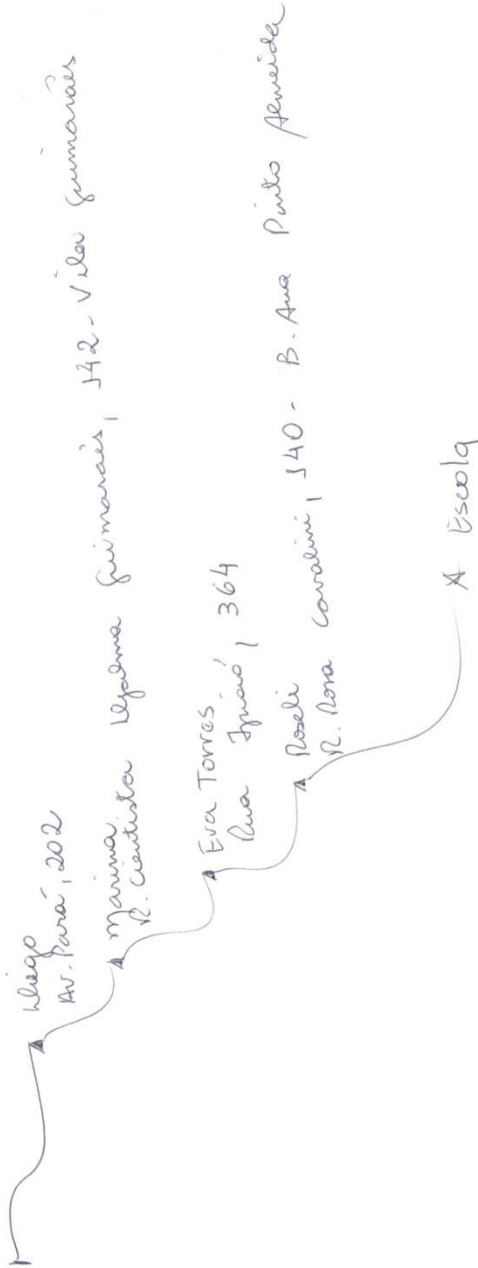 Diego
Av. Pará, 202
Marina
R. Cientista Djalma Guimarães, 142 - Vila Guimarães
Eva Torres
Rua 364
Roseli
R. Rosa Cavalini, 140 - B. Ana Pinto Almeida
Escola